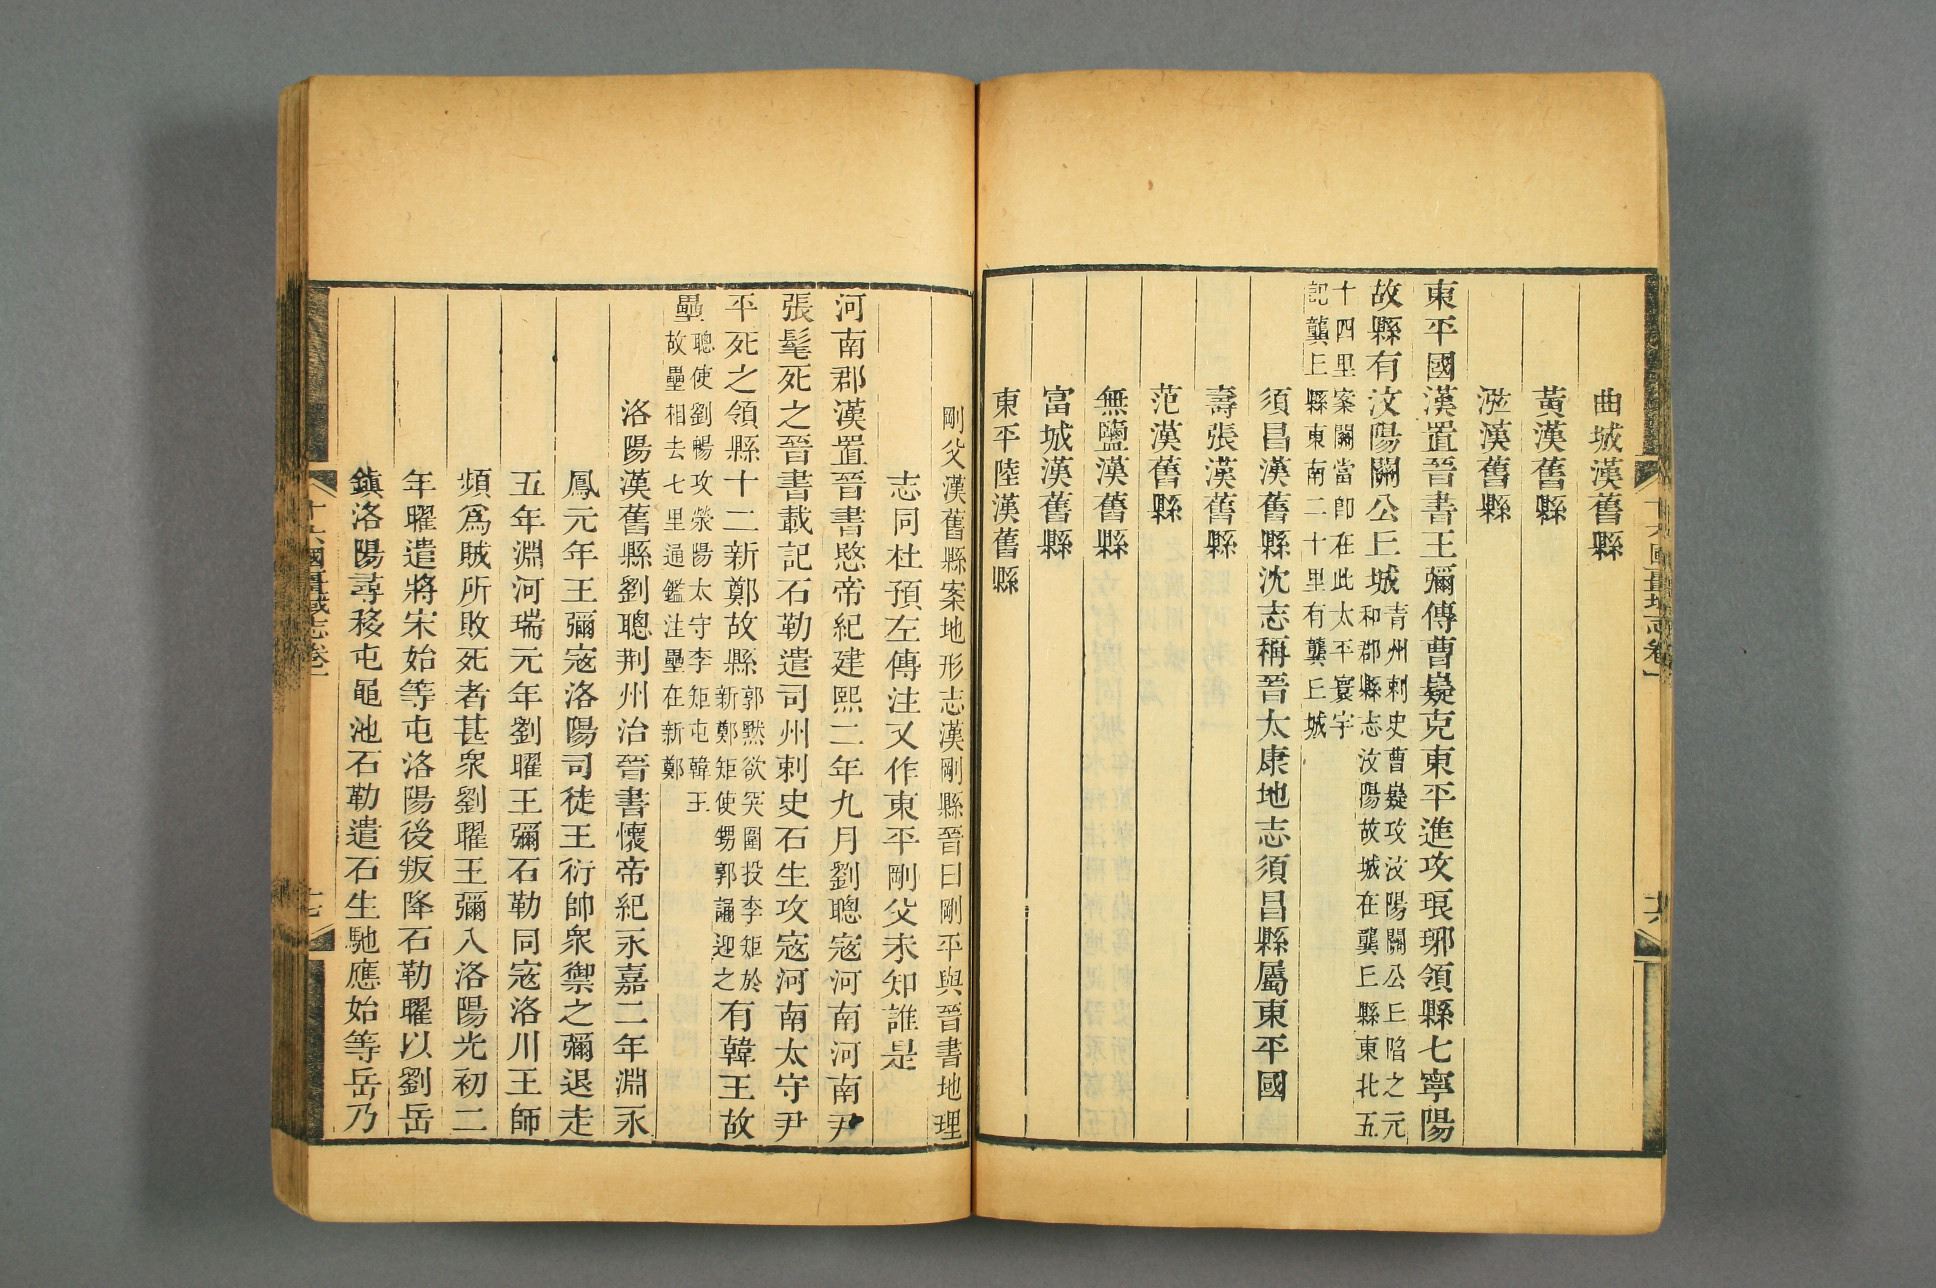 十六國疆域志卷一
十六
曲城漢舊縣
黃漢舊縣
漢舊縣
東平國漢置晉書王彌傳曹嶷克東平進攻琅邪領縣七寧陽
故縣有汶陽關公丘城
青州刺史曹嶷攻汶陽關公丘陷之元
和郡縣志汶陽故城在龔丘縣東北五
十四里案關當卽在此太平寰宇
記龔丘縣東南二十里有龔丘城
須昌漢舊縣沈志稱晉太康地志須昌縣屬東平國
壽張漢舊縣
范漢舊縣
無鹽漢舊縣
富城漢舊縣
東平陸漢舊縣
剛父漢舊縣案地形志漢剛縣晉曰剛平與晉書地理
志同杜預左傳注又作東平剛父未知誰是
河南郡漢置晉書愍帝紀建熙二年九月劉聰寇河南河南尹
張髦死之晉書載記石勒遣司州刺史石生攻寇河南太守尹
平死之領縣十二新鄭故縣
郭默欲突圍投李矩於
新鄭矩使甥郭誦迎之
有韓王故
壘
聰使劉暢攻滎陽太守李矩屯韓王
故壘相去七里通鑑注壘在新鄭
洛陽漢舊縣劉聰荆州治晉書懷帝紀永嘉二年淵永
鳳元年王彌寇洛陽司徒王衍帥衆禦之彌退走
五年淵河瑞元年劉曜王彌石勒同寇洛川王師
頻爲賊所敗死者甚衆劉曜王彌入洛陽光初二
年曜遣將宋始等屯洛陽後叛降石勒曜以劉岳
鎮洛陽尋移屯黽池石勒遣石生馳應始等岳乃
十六國疆域志卷一
十七